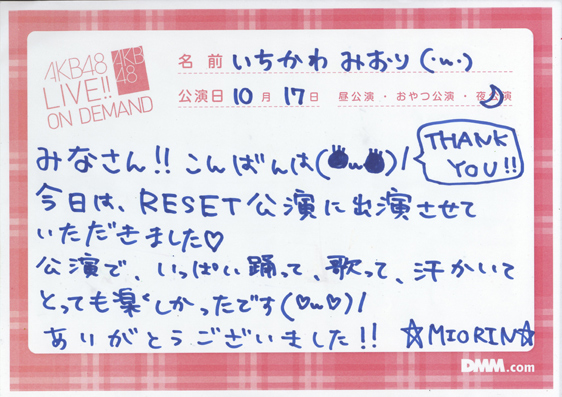 AKB48
LIVE!!
ON DEMAND
AKB
48
名前 いちかわ みおり (・ω・)
公演日 10月 17日 昼公演・おやつ公演・夜公演
みなさん!! こんばんは(●ω●)/
THANK
YOU!!
今日は、RESET公演に出演させて
いただきました♡
公演で、いっぱい踊って、歌って、汗かいて
とっても楽しかったです(♡ω♡)/
ありがとうございました!! ☆MIORIN☆
DMM.com